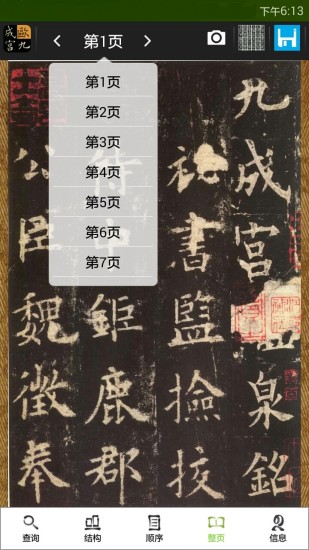 下午6:13
歐九
成宮
第1页
第1页
第2页
第3页
第4页
第5页
第6页
第7页
九成宮泉銘
祕書監撿挍
侍中鉅鹿郡
公臣魏徵奉
查询 结构 顺序 整页 信息